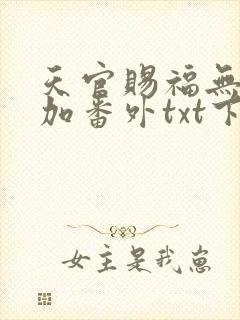 天官賜福無
加番外txt下
女主是我崽